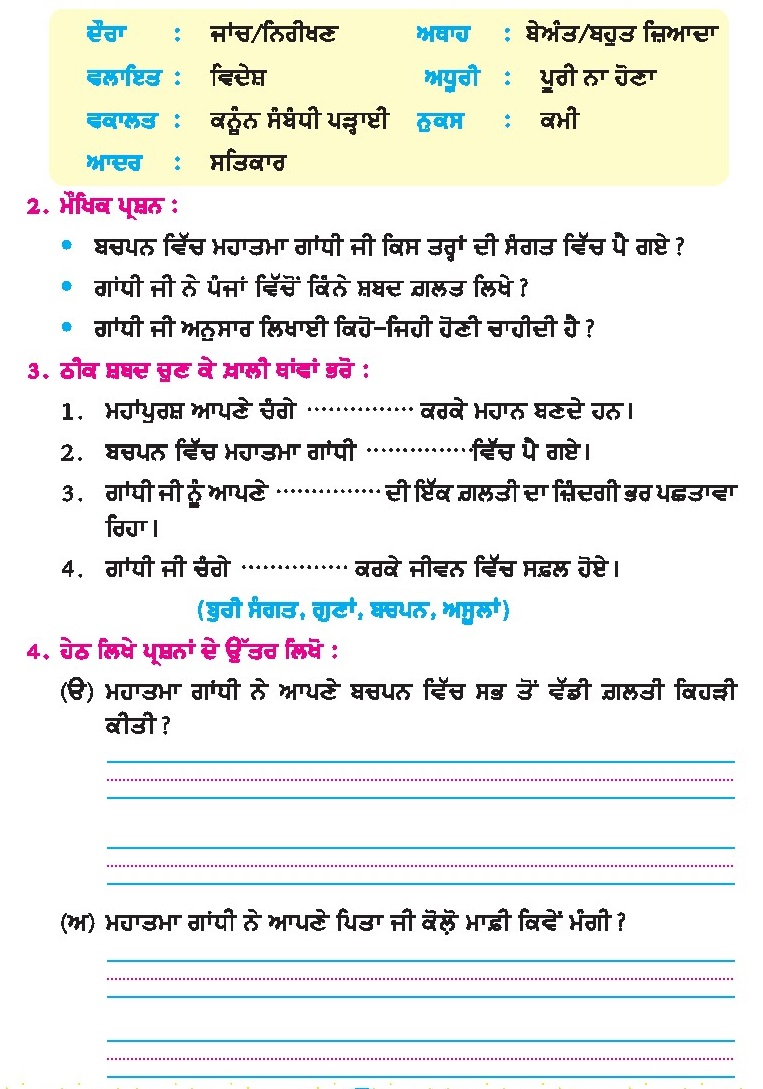 ਦੌਰਾ : ਜਾਂਚ/ਨਿਰੀਖਣ ਅਥਾਹ : ਬੇਅੰਤ/ਬਹੁਤ ਜ਼ਿਆਦਾ
ਵਲਾਇਤ : ਵਿਦੇਸ਼ ਅਧੂਰੀ : ਪੂਰੀ ਨਾ ਹੋਣਾ
ਵਕਾਲਤ : ਕਨੂੰਨ ਸੰਬੰਧੀ ਪੜ੍ਹਾਈ ਨੁਕਸ : ਕਮੀ
ਆਦਰ : ਸਤਿਕਾਰ
2. ਮੌਖਿਕ ਪ੍ਰਸ਼ਨ :
• ਬਚਪਨ ਵਿੱਚ ਮਹਾਤਮਾ ਗਾਂਧੀ ਜੀ ਕਿਸ ਤਰ੍ਹਾਂ ਦੀ ਸੰਗਤ ਵਿੱਚ ਪੈ ਗਏ ?
• ਗਾਂਧੀ ਜੀ ਨੇ ਪੰਜਾਂ ਵਿੱਚੋਂ ਕਿੰਨੇ ਸ਼ਬਦ ਗ਼ਲਤ ਲਿਖੇ ?
• ਗਾਂਧੀ ਜੀ ਅਨੁਸਾਰ ਲਿਖਾਈ ਕਿਹੋ-ਜਿਹੀ ਹੋਣੀ ਚਾਹੀਦੀ ਹੈ ?
3. ਠੀਕ ਸ਼ਬਦ ਚੁਣ ਕੇ ਖ਼ਾਲੀ ਥਾਂਵਾਂ ਭਰੋ :
1. ਮਹਾਂਪੁਰਸ਼ ਆਪਣੇ ਚੰਗੇ ............... ਕਰਕੇ ਮਹਾਨ ਬਣਦੇ ਹਨ।
2. ਬਚਪਨ ਵਿੱਚ ਮਹਾਤਮਾ ਗਾਂਧੀ ...............ਵਿੱਚ ਪੈ ਗਏ।
3. ਗਾਂਧੀ ਜੀ ਨੂੰ ਆਪਣੇ ............... ਦੀ ਇੱਕ ਗ਼ਲਤੀ ਦਾ ਜ਼ਿੰਦਗੀ ਭਰ ਪਛਤਾਵਾ
ਰਿਹਾ।
4. ਗਾਂਧੀ ਜੀ ਚੰਗੇ ............... ਕਰਕੇ ਜੀਵਨ ਵਿੱਚ ਸਫ਼ਲ ਹੋਏ।
(ਬੁਰੀ ਸੰਗਤ, ਗੁਣਾਂ, ਬਚਪਨ, ਅਸੂਲਾਂ)
4. ਹੇਠ ਲਿਖੇ ਪ੍ਰਸ਼ਨਾਂ ਦੇ ਉੱਤਰ ਲਿਖੋ :
(ੳ) ਮਹਾਤਮਾ ਗਾਂਧੀ ਨੇ ਆਪਣੇ ਬਚਪਨ ਵਿੱਚ ਸਭ ਤੋਂ ਵੱਡੀ ਗ਼ਲਤੀ ਕਿਹੜੀ
ਕੀਤੀ ?
(ਅ) ਮਹਾਤਮਾ ਗਾਂਧੀ ਨੇ ਆਪਣੇ ਪਿਤਾ ਜੀ ਕੋਲ਼ੋਂ ਮਾਫ਼ੀ ਕਿਵੇਂ ਮੰਗੀ ?